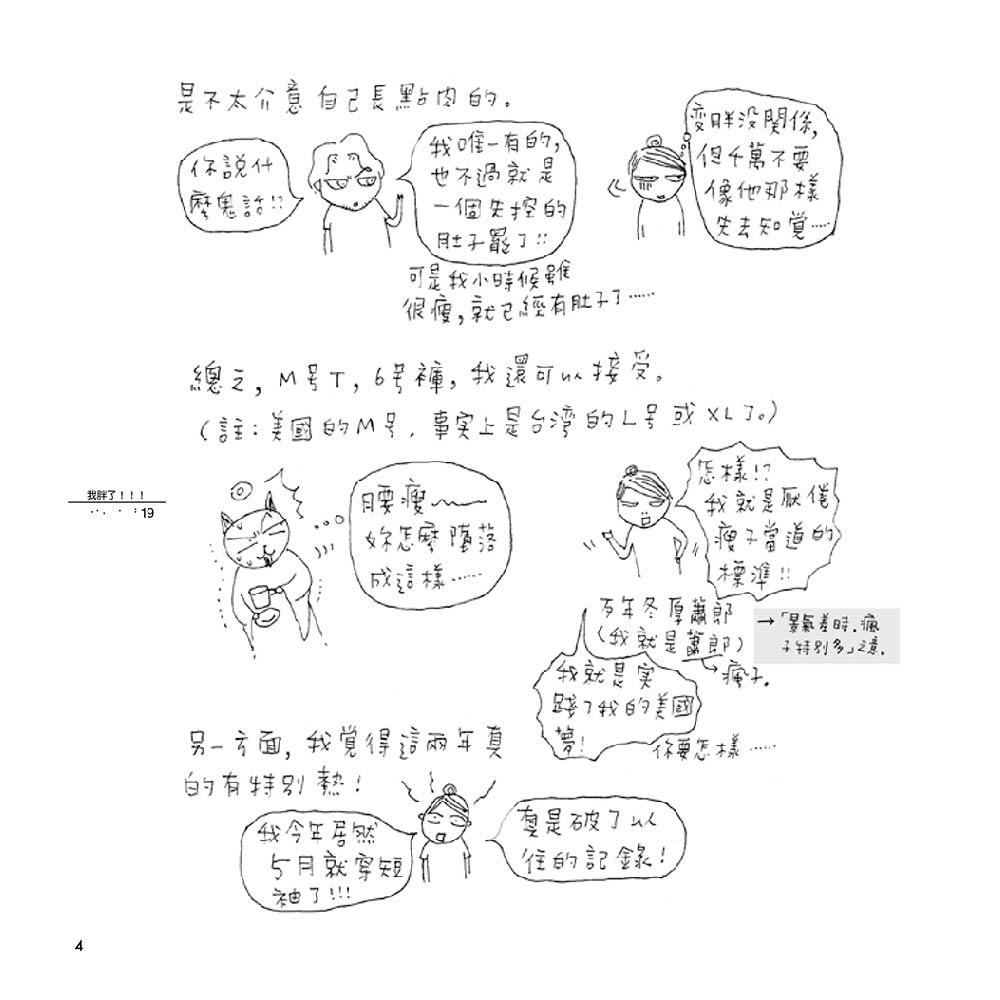 是不太介意自己長點肉的。
你說什
麼鬼話!!
我唯一有的,
也不過就是
一個失控的
肚子罷了!!
变胖没關係,
但千萬不要
像他那樣
失去知覚……
可是我小時候雖
很瘦,就已經有肚子了……
總之,M号T,6号褲,我還可以接受。
(註:美國的M号,事实上是台湾的L号或XL了。)
我胖了!!!
19
腰瘦~~
妳怎麼墮落
成這樣……
怎樣!?
我就是厭倦
瘦子當道的
標準!!
歹年冬厚蕭郎
(我就是蕭郎)
→瘋子。
→「景氣差時,瘋
子特别多」之意。
我就是実
踐了我的美國
夢!
你要怎樣……
另一方面,我覺得這兩年真
的有特别熱!
我今年居然
5月就穿短
袖了!!!
真是破了以
往的記錄!
4